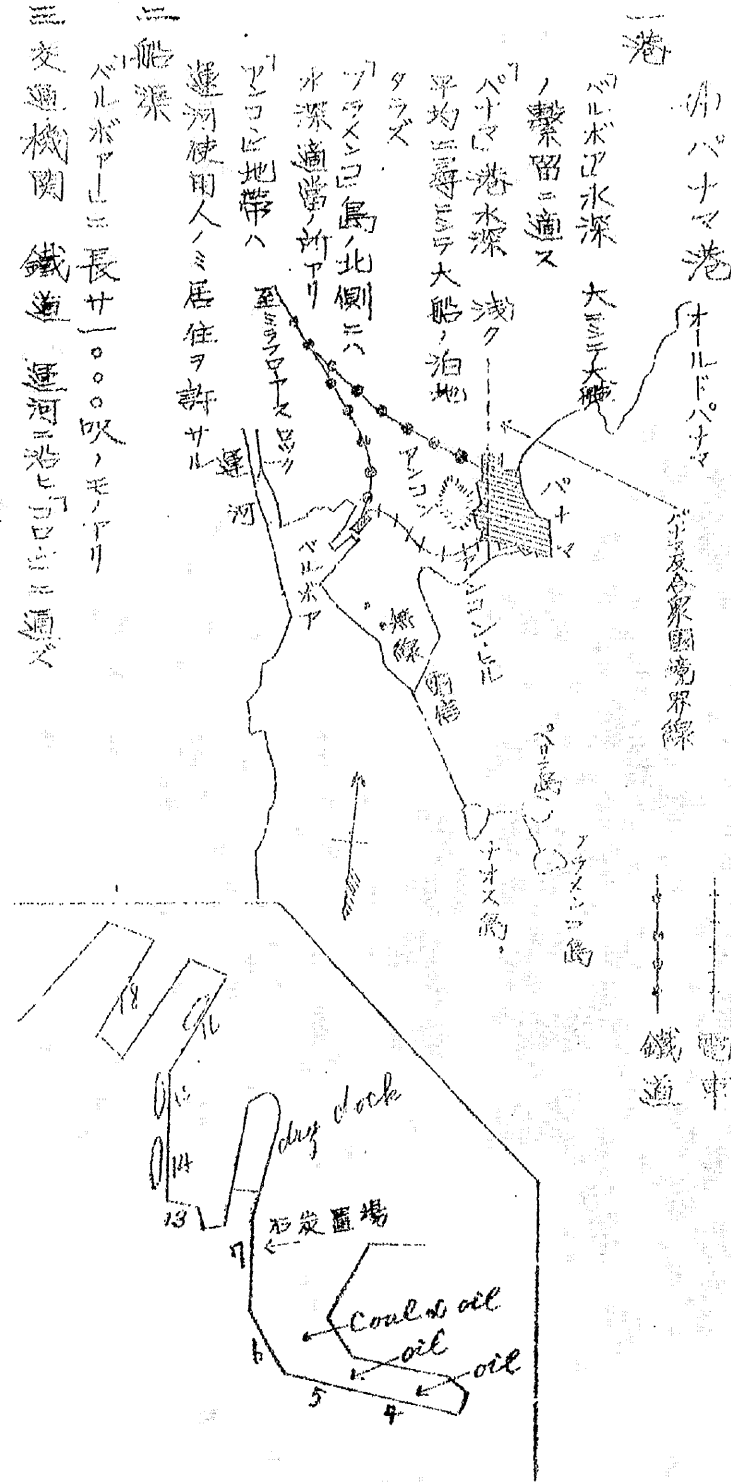 (小)パナマ港
一港
「バルボア」水深 大ニシテ大船
ノ繋留ニ適ス
「パナマ」港水深 浅ク
平均三尋ニシテ大船ノ泊地
タラズ
「フラメンコ」島ノ北側ニハ
水深適當ノ所アリ
「アンコン」地帶ハ
運河使用人ノミ居住ヲ許サル
二船渠
「バルボアー」ニ長サ一〇〇〇呎ノモノアリ
三交通機関 鐵道 運河ニ沿ヒ「コロン」ニ通ズ
オールドパナマ
パナマ及合衆國境界線
パナマ
アンコン
アンコン・ヒル
至ミラフロアースロック
運河
バルボア
無線
ペリコ島
ナオス島
フラメンコ島
電車
鐵道
18
16
15
14
13
dry dock
石炭置場
7
Coal & oil
oil
oil
6
5
4